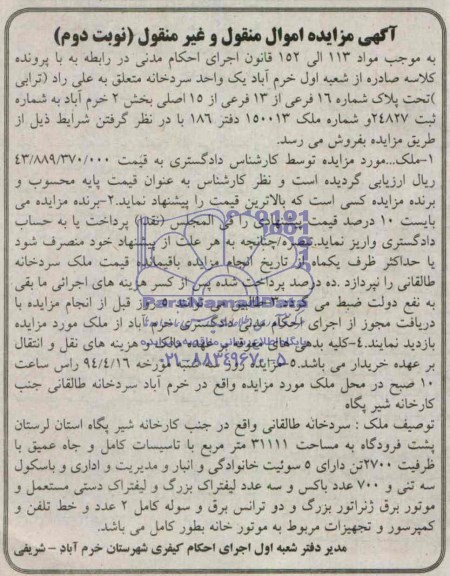 آگهی مزایده اموال منقول و غیر منقول (نوبت دوم)
به موجب مواد ۱۱۳ الی ۱۵۲ قانون اجرای احکام مدنی در رابطه به با پرونده
کلاسه صادره از شعبه اول خرم آباد یک واحد سردخانه متعلق به علی راد (ترابی
)تحت پلاک شماره ۱۶ فرعی از ۱۳ فرعی از ۱۵ اصلی بخش ۲ خرم آباد به شماره
ثبت ۲۴۸۲۷و شماره ملک ۱۵۰۰۱۳ دفتر ۱۸۶ با در نظر گرفتن شرایط ذیل از
طریق مزایده بفروش می رسد.
۱-ملک...مورد مزایده توسط کارشناس دادگستری به قیمت ۴۳/۸۸۹/۳۷۰/۰۰۰
ریال ارزیابی گردیده است و نظر کارشناس به عنوان قیمت پایه محسوب و
برنده مزایده کسی است که بالاترین قیمت را پیشنهاد نماید.۲-برنده مزایده می
بایست ۱۰ درصد قیمت پیشنهادی را فی المجلس (نقدا) پرداخت یا به حساب
دادگستری واریز نماید.تبصره/چنانچه به هر علت از پیشنهاد خود منصرف شود
یا حداکثر ظرف یکماه از تاریخ انجام مزایده باقیمانده قیمت ملک سردخانه
طالقانی را نپردازد .ده درصد پرداخت شده پس از کسر هزینه های اجرائی ما بقی
به نفع دولت ضبط می گردد.۳-طالبین می توانند ۵ روز قبل از انجام مزایده با
دریافت مجوز از اجرای احکام مدنی دادگستری خرم آباد از ملک مورد مزایده
بازدید نمایند.۴-کلیه بدهی های معرفه بر عهده مالک و هزینه های نقل و انتقال
بر عهده خریدار می باشد.۵-مزایده روز شنبه مورخه ۹۴/۴/۱۶ راس ساعت
۱۰ صبح در محل ملک مورد مزایده واقع در خرم آباد سردخانه طالقانی جنب
کارخانه شیر پگاه
توصیف ملک : سردخانه طالقانی واقع در جنب کارخانه شیر پگاه استان لرستان
پشت فرودگاه به مساحت ۳۱۱۱۱ متر مربع با تاسیسات کامل و جاه عمیق با
ظرفیت ۲۷۰۰تن دارای ۵ سوئیت خانوادگی و انبار و مدیریت و اداری و باسکول
سه تنی و ۷۰۰ عدد باکس و سه عدد لیفتراک بزرگ و لیفتراک دستی مستعمل و
موتور برق ژنراتور بزرگ و دو ترانس برق و سوله کامل ۲ عدد و خط تلفن و
کمپرسور و تجهیزات مربوط به موتور خانه بطور کامل می باشد.
مدیر دفتر شعبه اول اجرای احکام کیفری شهرستان خرم آباد - شریفی
ParsNamadData
۰۲۱-۸۸۳۴۹۶۷۰-۵